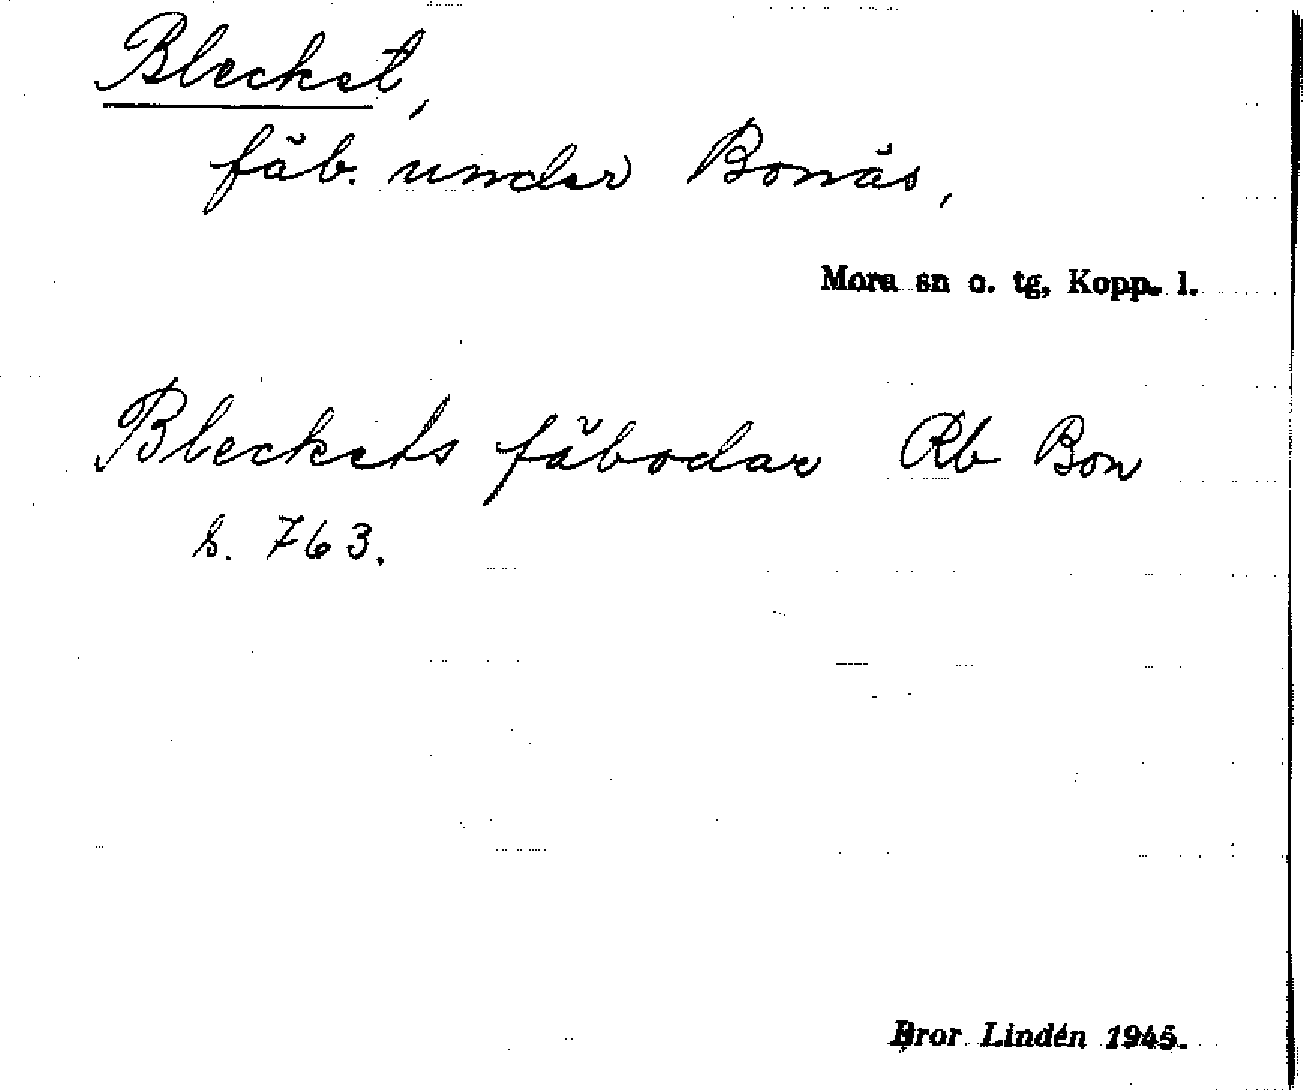 Blecket,
fäb. under Bonäs,
Mora sn o. tg, Kopp. l.
Bleckets fäbodar Rb Bon
s. 763.
Bror Lindén 1945.